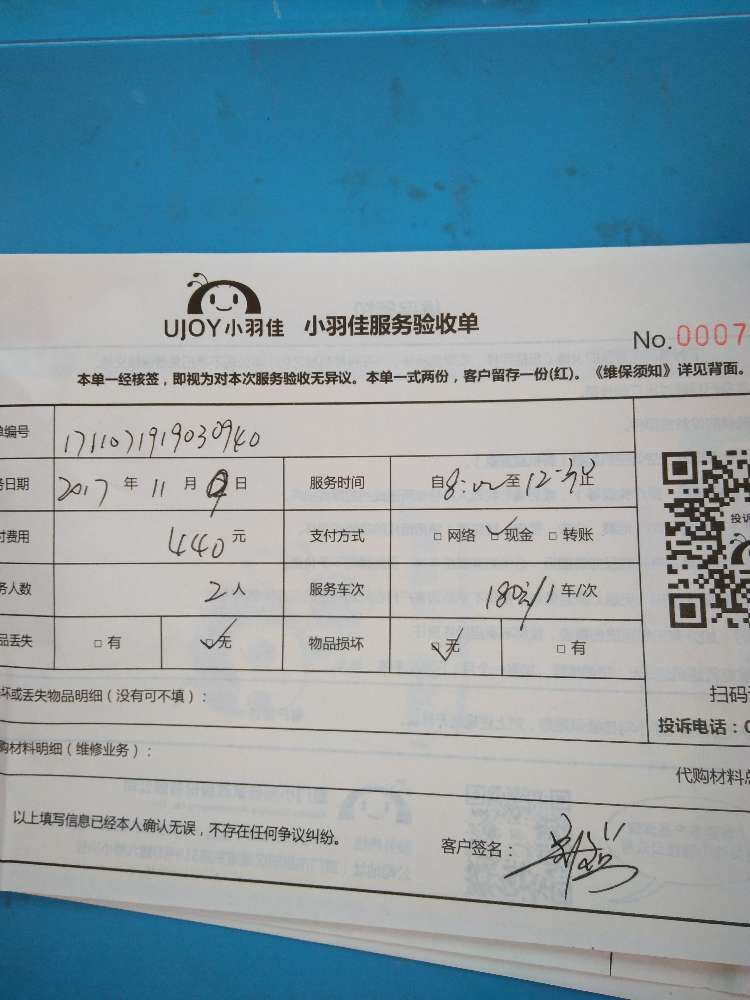 UJOY小羽佳 小羽佳服务验收单
No.0007
本单一经核签，即视为对本次服务验收无异议。本单一式两份，客户留存一份(红)。《维保须知》详见背面。
单编号 1711071919030940
务日期 2017 年 11 月 9 日 服务时间 自8:00至12:30止
付费用 440元 支付方式 □ 网络 □ 现金 □ 转账
投诉
务人数 2人 服务车次 180元/1 车/次
品丢失 □ 有 □ 无 物品损坏 □ 无 □ 有
坏或丢失物品明细（没有可不填）：
扫码
投诉电话：0
购材料明细（维修业务）：
代购材料总
以上填写信息已经本人确认无误，不存在任何争议纠纷。
客户签名：